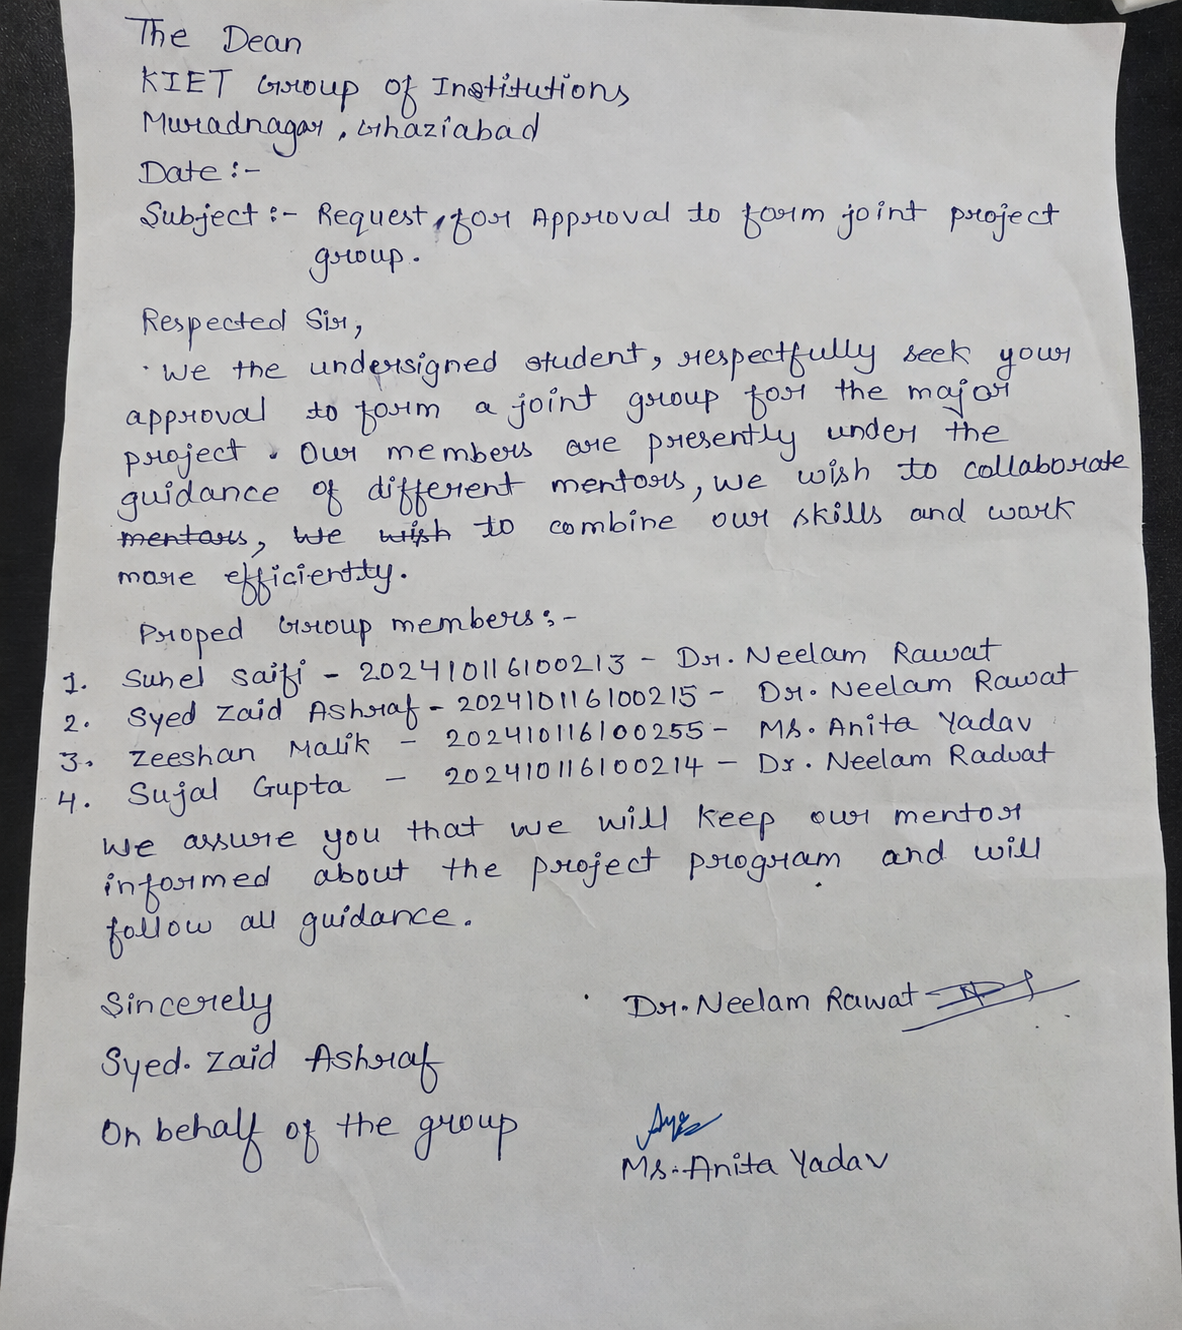 The Dean
KIET Group of Institutions
Muradnagar, Ghaziabad
Date :-
Subject :- Request, for Approval to form joint project
group.
Respected Sir,
We the undersigned student, respectfully seek your
approval to form a joint group for the major
project. Our members are presently under the
guidance of different mentors, we wish to collaborate
mentors, we wish to combine our skills and work
more efficientty.
Proped Group members :-
1. Suhel Saifi - 202410116100213 - Dr. Neelam Rawat
2. Syed Zaid Ashraf - 202410116100215 - Dr. Neelam Rawat
3. Zeeshan Malik - 202410116100255 - Ms. Anita Yadav
4. Sujal Gupta - 202410116100214 - Dr. Neelam Radwat
We assure you that we will keep our mentor
informed about the project program and will
follow all guidance.
Sincerely
Dr. Neelam Rawat
Syed. Zaid Ashraf
On behalf of the group
Ms. Anita Yadav